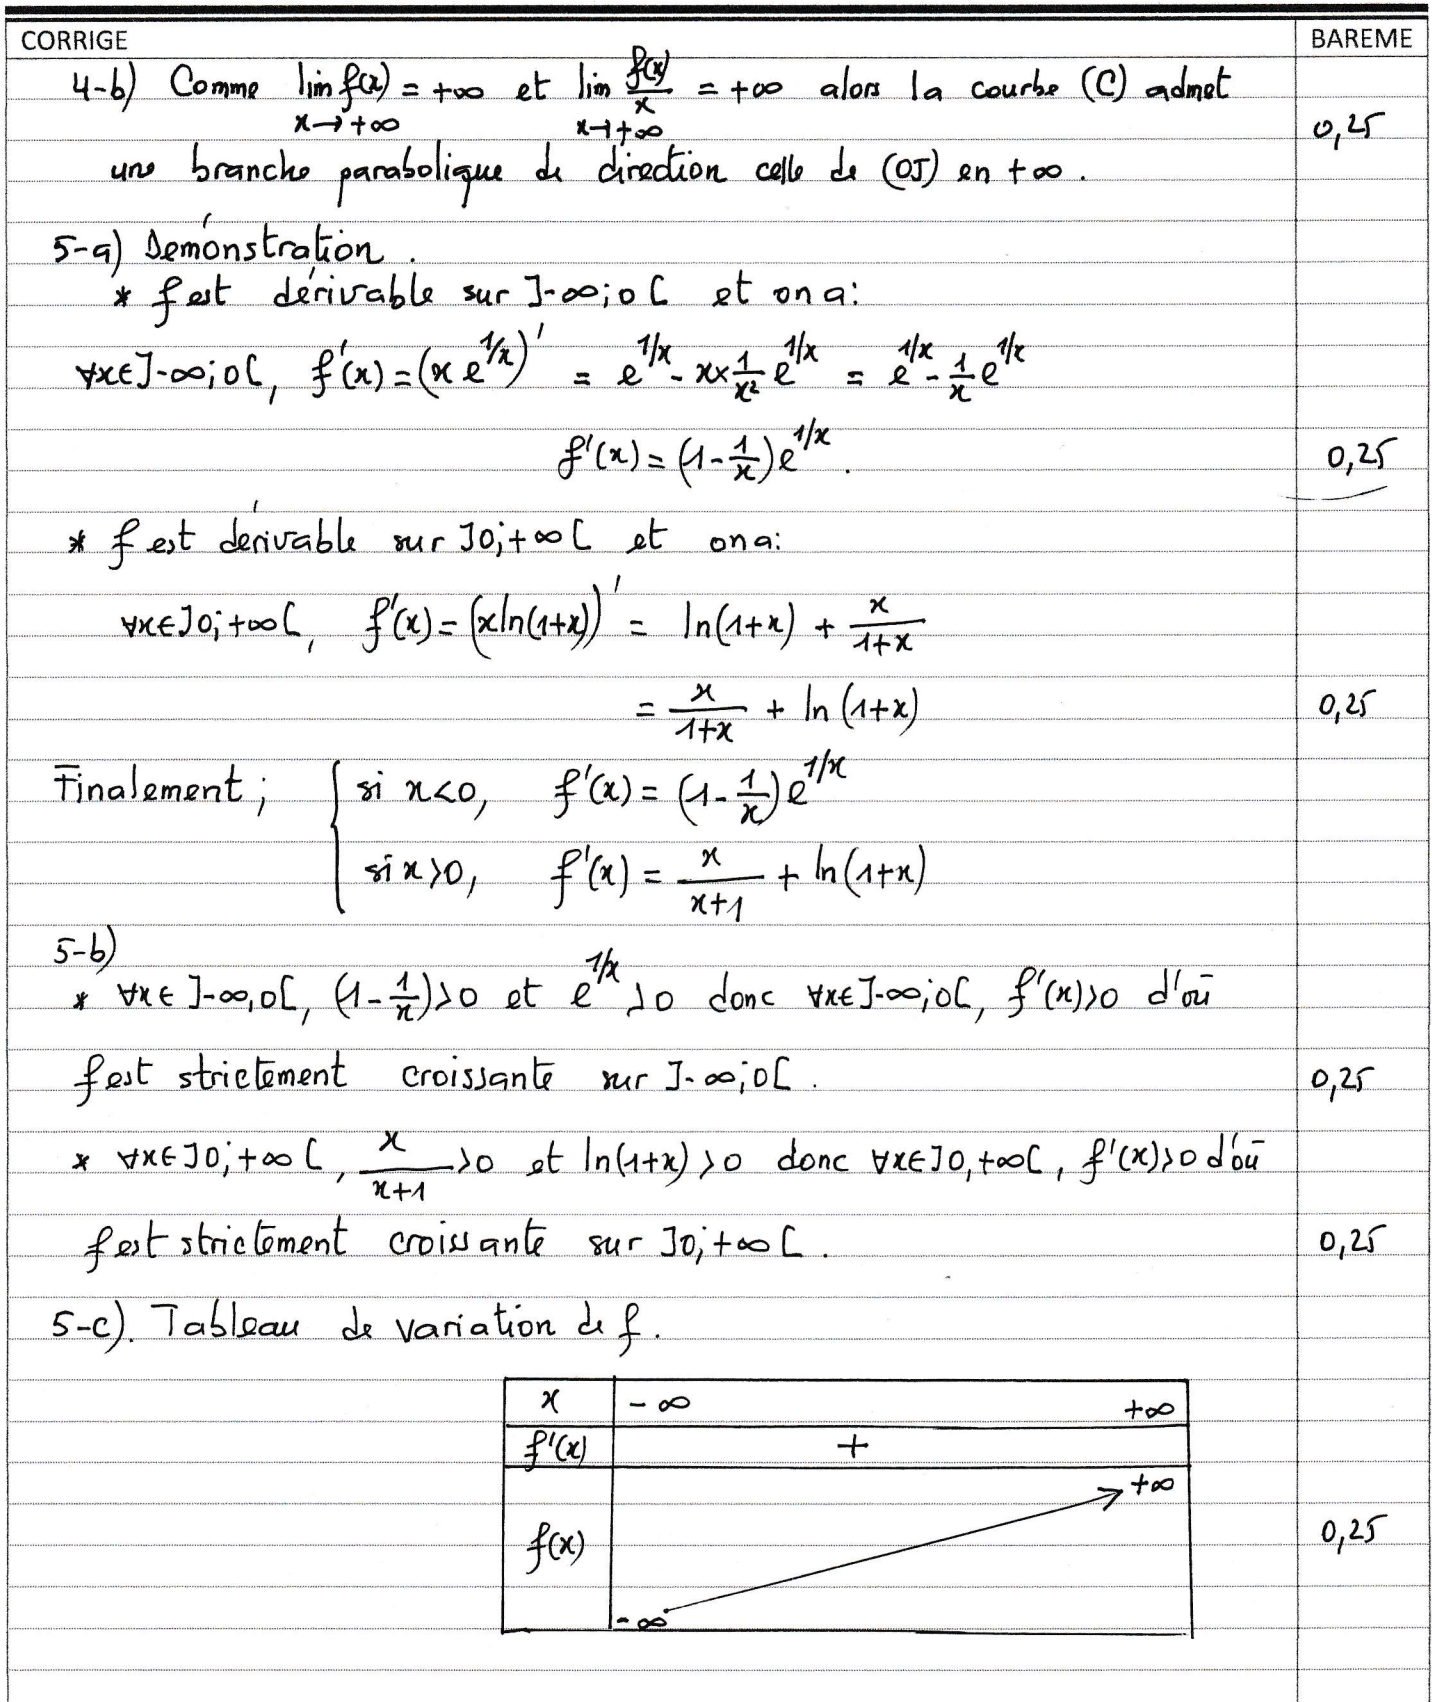 CORRIGE BAREME
4-b) Comme lim f(x) = +∞ et lim f(x)/x = +∞ alors la courbe (C) admet
x→+∞ x→+∞ 0,25
une branche parabolique de direction celle de (OJ) en +∞.
5-a) Démonstration.
* f est dérivable sur ]-∞;0[ et on a:
∀x∈]-∞;0[, f'(x) = (x e^{1/x})' = e^{1/x} - x×1/x² e^{1/x} = e^{1/x} - 1/x e^{1/x}
f'(x) = (1 - 1/x) e^{1/x}. 0,25
* f est dérivable sur ]0;+∞[ et on a:
∀x∈]0;+∞[, f'(x) = (xln(1+x))' = ln(1+x) + x/(1+x)
= x/(1+x) + ln(1+x) 0,25
Finalement; { si x<0, f'(x) = (1 - 1/x) e^{1/x}
si x>0, f'(x) = x/(x+1) + ln(1+x)
5-b)
* ∀x∈ ]-∞,0[, (1 - 1/x)>0 et e^{1/x}>0 donc ∀x∈]-∞;0[, f'(x)>0 d'où
f est strictement croissante sur ]-∞;0[. 0,25
* ∀x∈]0;+∞[, x/(x+1) >0 et ln(1+x)>0 donc ∀x∈]0,+∞[, f'(x)>0 d'où
f est strictement croissante sur ]0;+∞[. 0,25
5-c). Tableau de variation de f.
x -∞ +∞
f'(x) +
+∞
f(x) 0,25
-∞